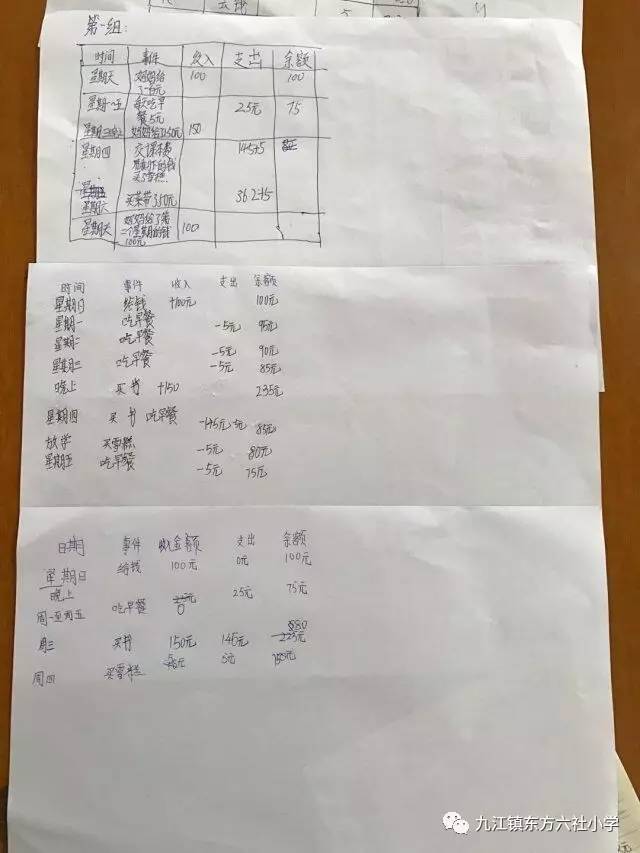 第一组:
时间 事件 收入 支出 余额
星期天 妈妈给了一百元 100 100
星期一~五 每天吃早餐5元 25元 75
妈妈给了150元 150
星期四 交课本费 145+5
买雪糕
星期天 买菜带 36.2元
星期天 妈妈给了第二个星期的钱100元 100
时间 事件 收入 支出 余额
星期日 给钱 +100元 100元
星期一 吃早餐 -5元 95元
星期二 吃早餐 -5元 90元
星期三 吃早餐 -5元 85元
晚上 买书 +150 235元
星期四 买书 吃早餐 -145元 85元
放学 买雪糕 -5元 80元
星期五 吃早餐 -5元 75元
日期 事件 金额 支出 余额
星期日晚上 给钱 100元 0元 100元
周一至周五 吃早餐 0 25元 75元
周三 买书 150元 145元 80
周四 买雪糕 5元
九江镇东方六社小学